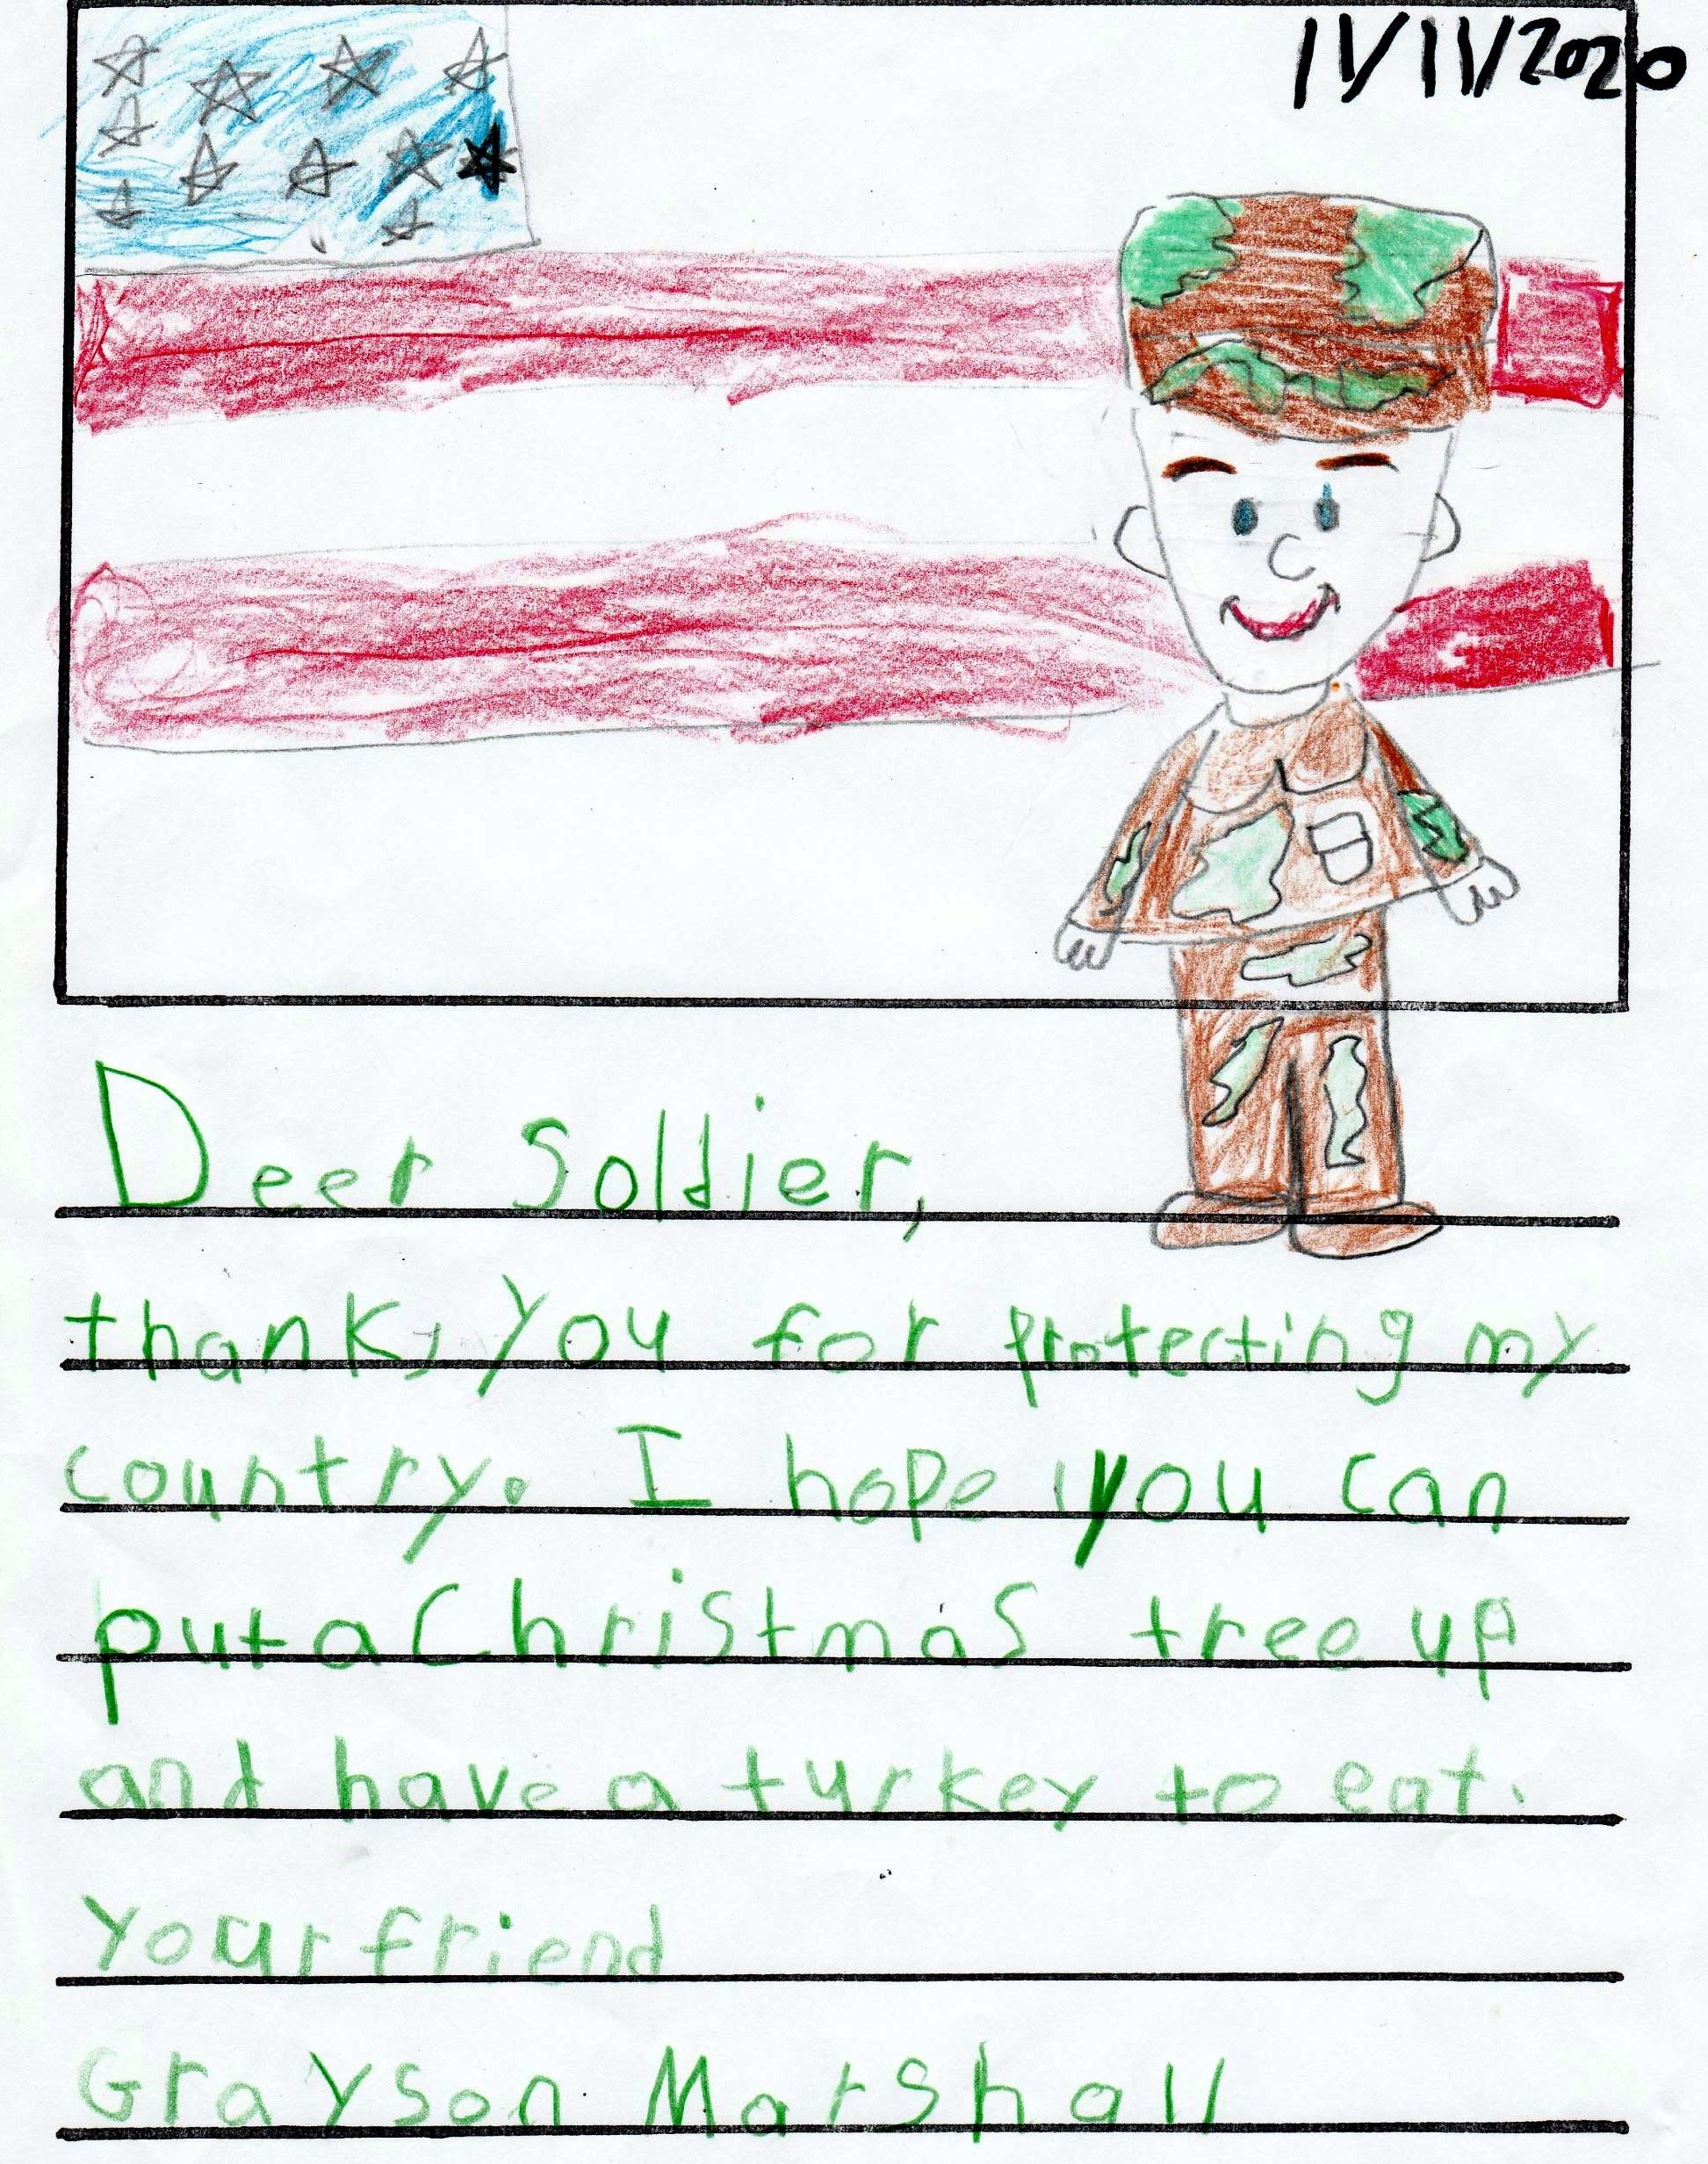 11/11/2020
Deer Soldier,
thank, you for protecting my
country. I hope you can
put a Christmas tree up
and have a turkey to eat.
your friend
Grayson Marshall